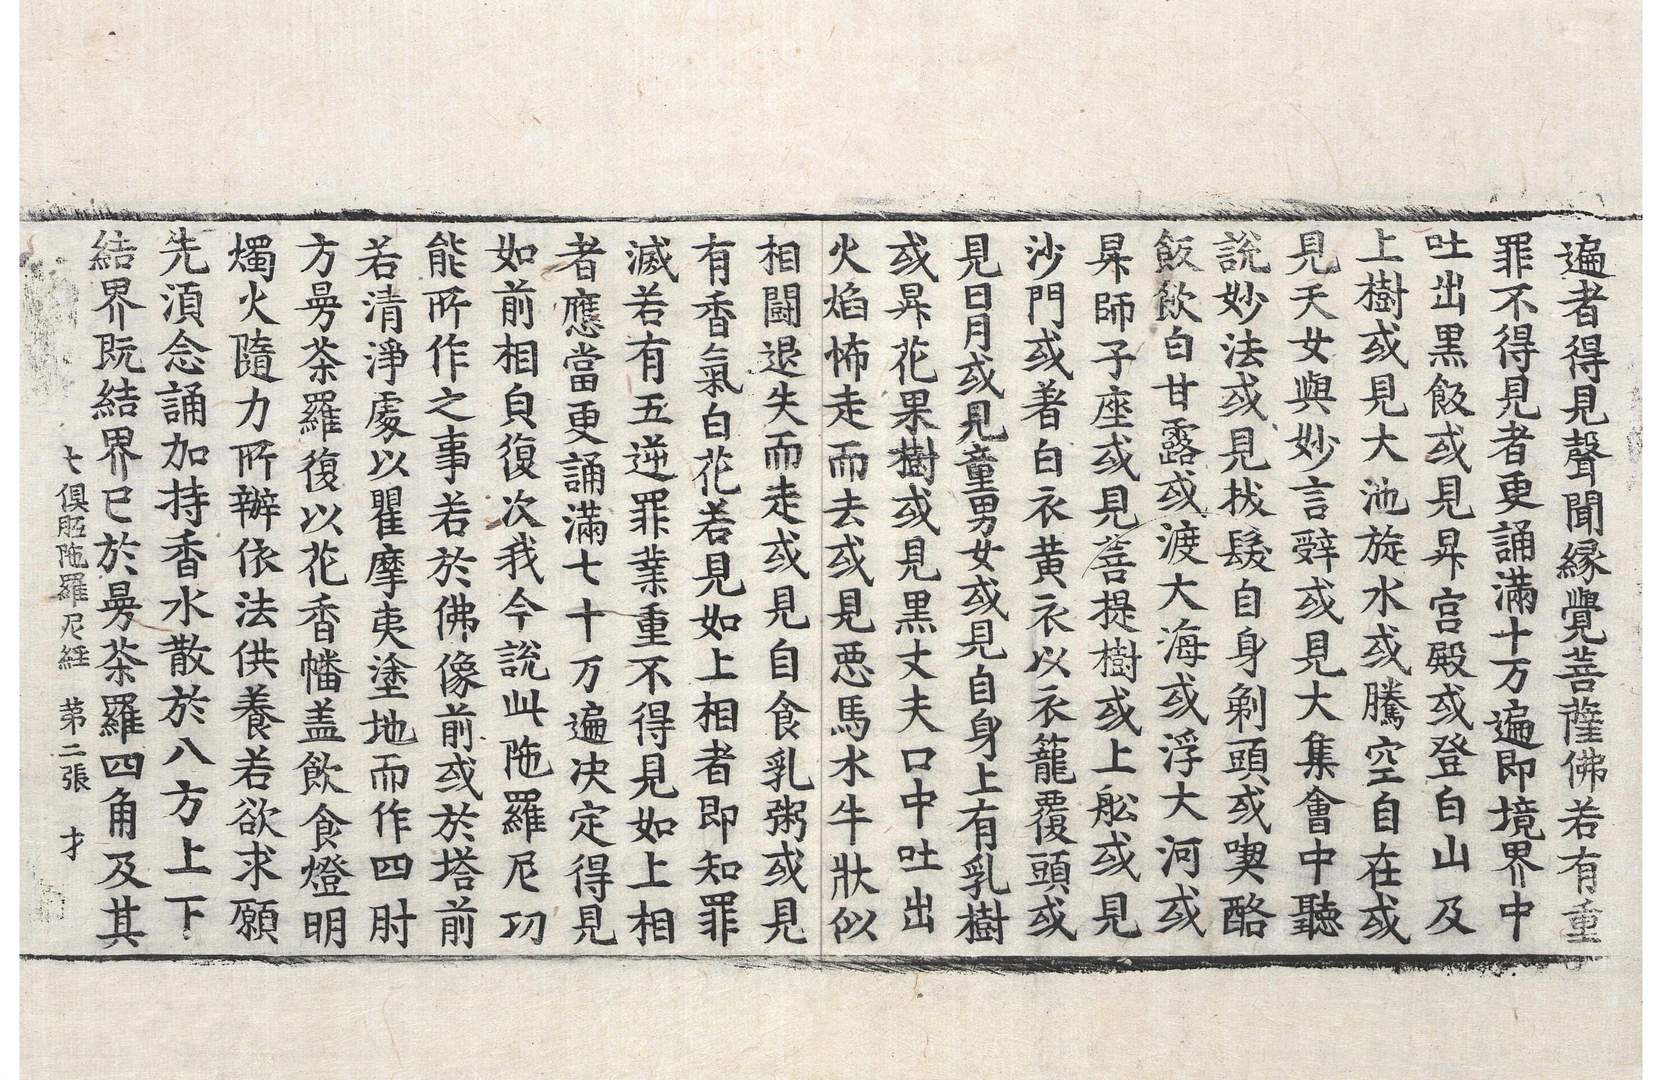 遍者得見聲聞緣覺菩薩佛若有重
罪不得見者更誦滿十万遍即境界中
吐出黑飯或見昇宮殿或登白山及
上樹或見大池旋水或騰空自在或
見天女與妙言辝或見大集會中聽
說妙法或見拔髮自身剃頭或喫酪
飯飲白甘露或渡大海或浮大河或
昇師子座或見菩提樹或上舩或見
沙門或著白衣黃衣以衣籠覆頭或
見日月或見童男女或見自身上有乳樹
或昇花果樹或見黑丈夫口中吐出
火焰怖走而去或見惡馬水牛狀似
相鬪退失而走或見自食乳粥或見
有香氣白花若見如上相者即知罪
滅若有五逆罪業重不得見如上相
者應當更誦滿七十万遍決定得見
如前相皃復次我今說此陁羅尼功
能所作之事若於佛像前或於塔前
若清淨處以瞿摩夷塗地而作四肘
方曼荼羅復以花香幡盖飲食燈明
燭火隨力所辦依法供養若欲求願
先須念誦加持香水散於八方上下
結界既結界已於曼荼羅四角及其
七俱胝陁羅尼經 第二張 才